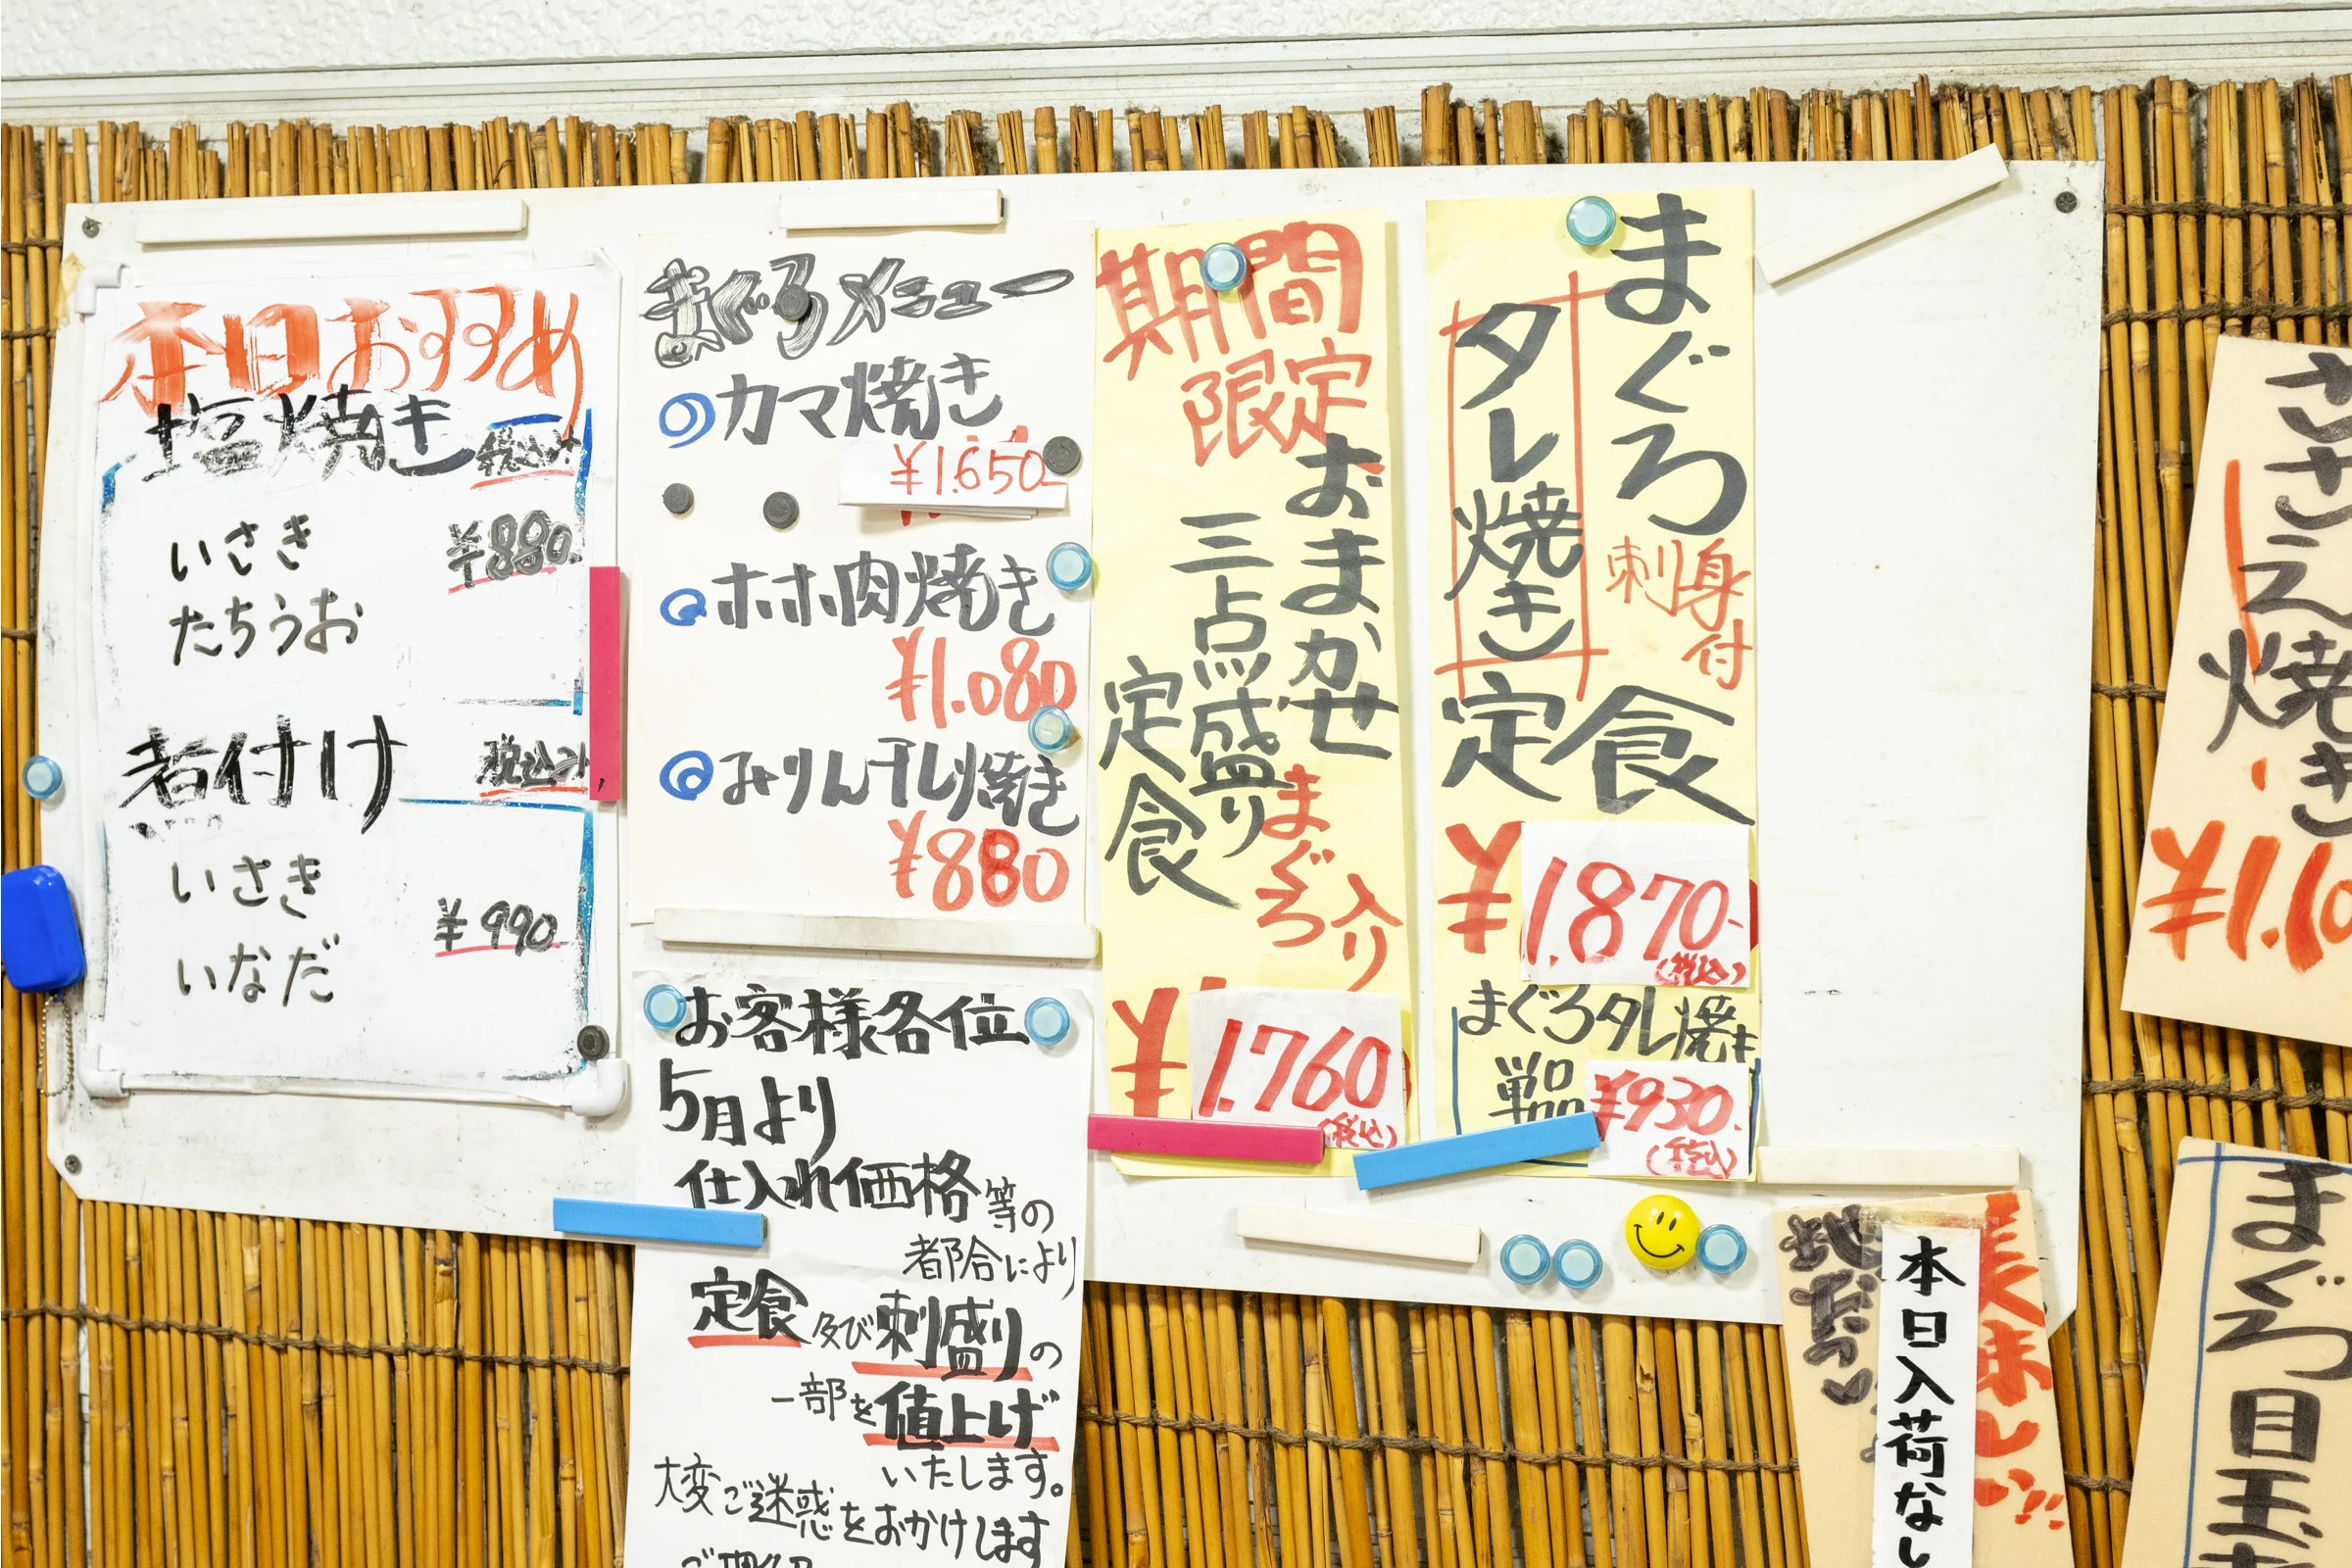 本日おすすめ
塩焼き 税込み
いさき ¥880
たちうお
煮付け 税込み
いさき ¥990
いなだ
まぐろメニュー
カマ焼き
¥1.650-
ホホ肉焼き
¥1.080
みりん干し焼き
¥880
お客様各位
5月より
仕入れ価格等の
都合により
定食及び刺盛りの
一部を値上げ
いたします。
大変ご迷惑をおかけします
期間
限定
おまかせ
三点盛り
定食
まぐろ
入り
¥1.760
(税込)
まぐろ
刺身
付
タレ焼き
定食
¥1.870-
(税込)
まぐろタレ焼き
単品
¥930.
(税込)
さざえ
焼き
¥1.10
美味しい!!
本日入荷なし
まぐろ
目玉